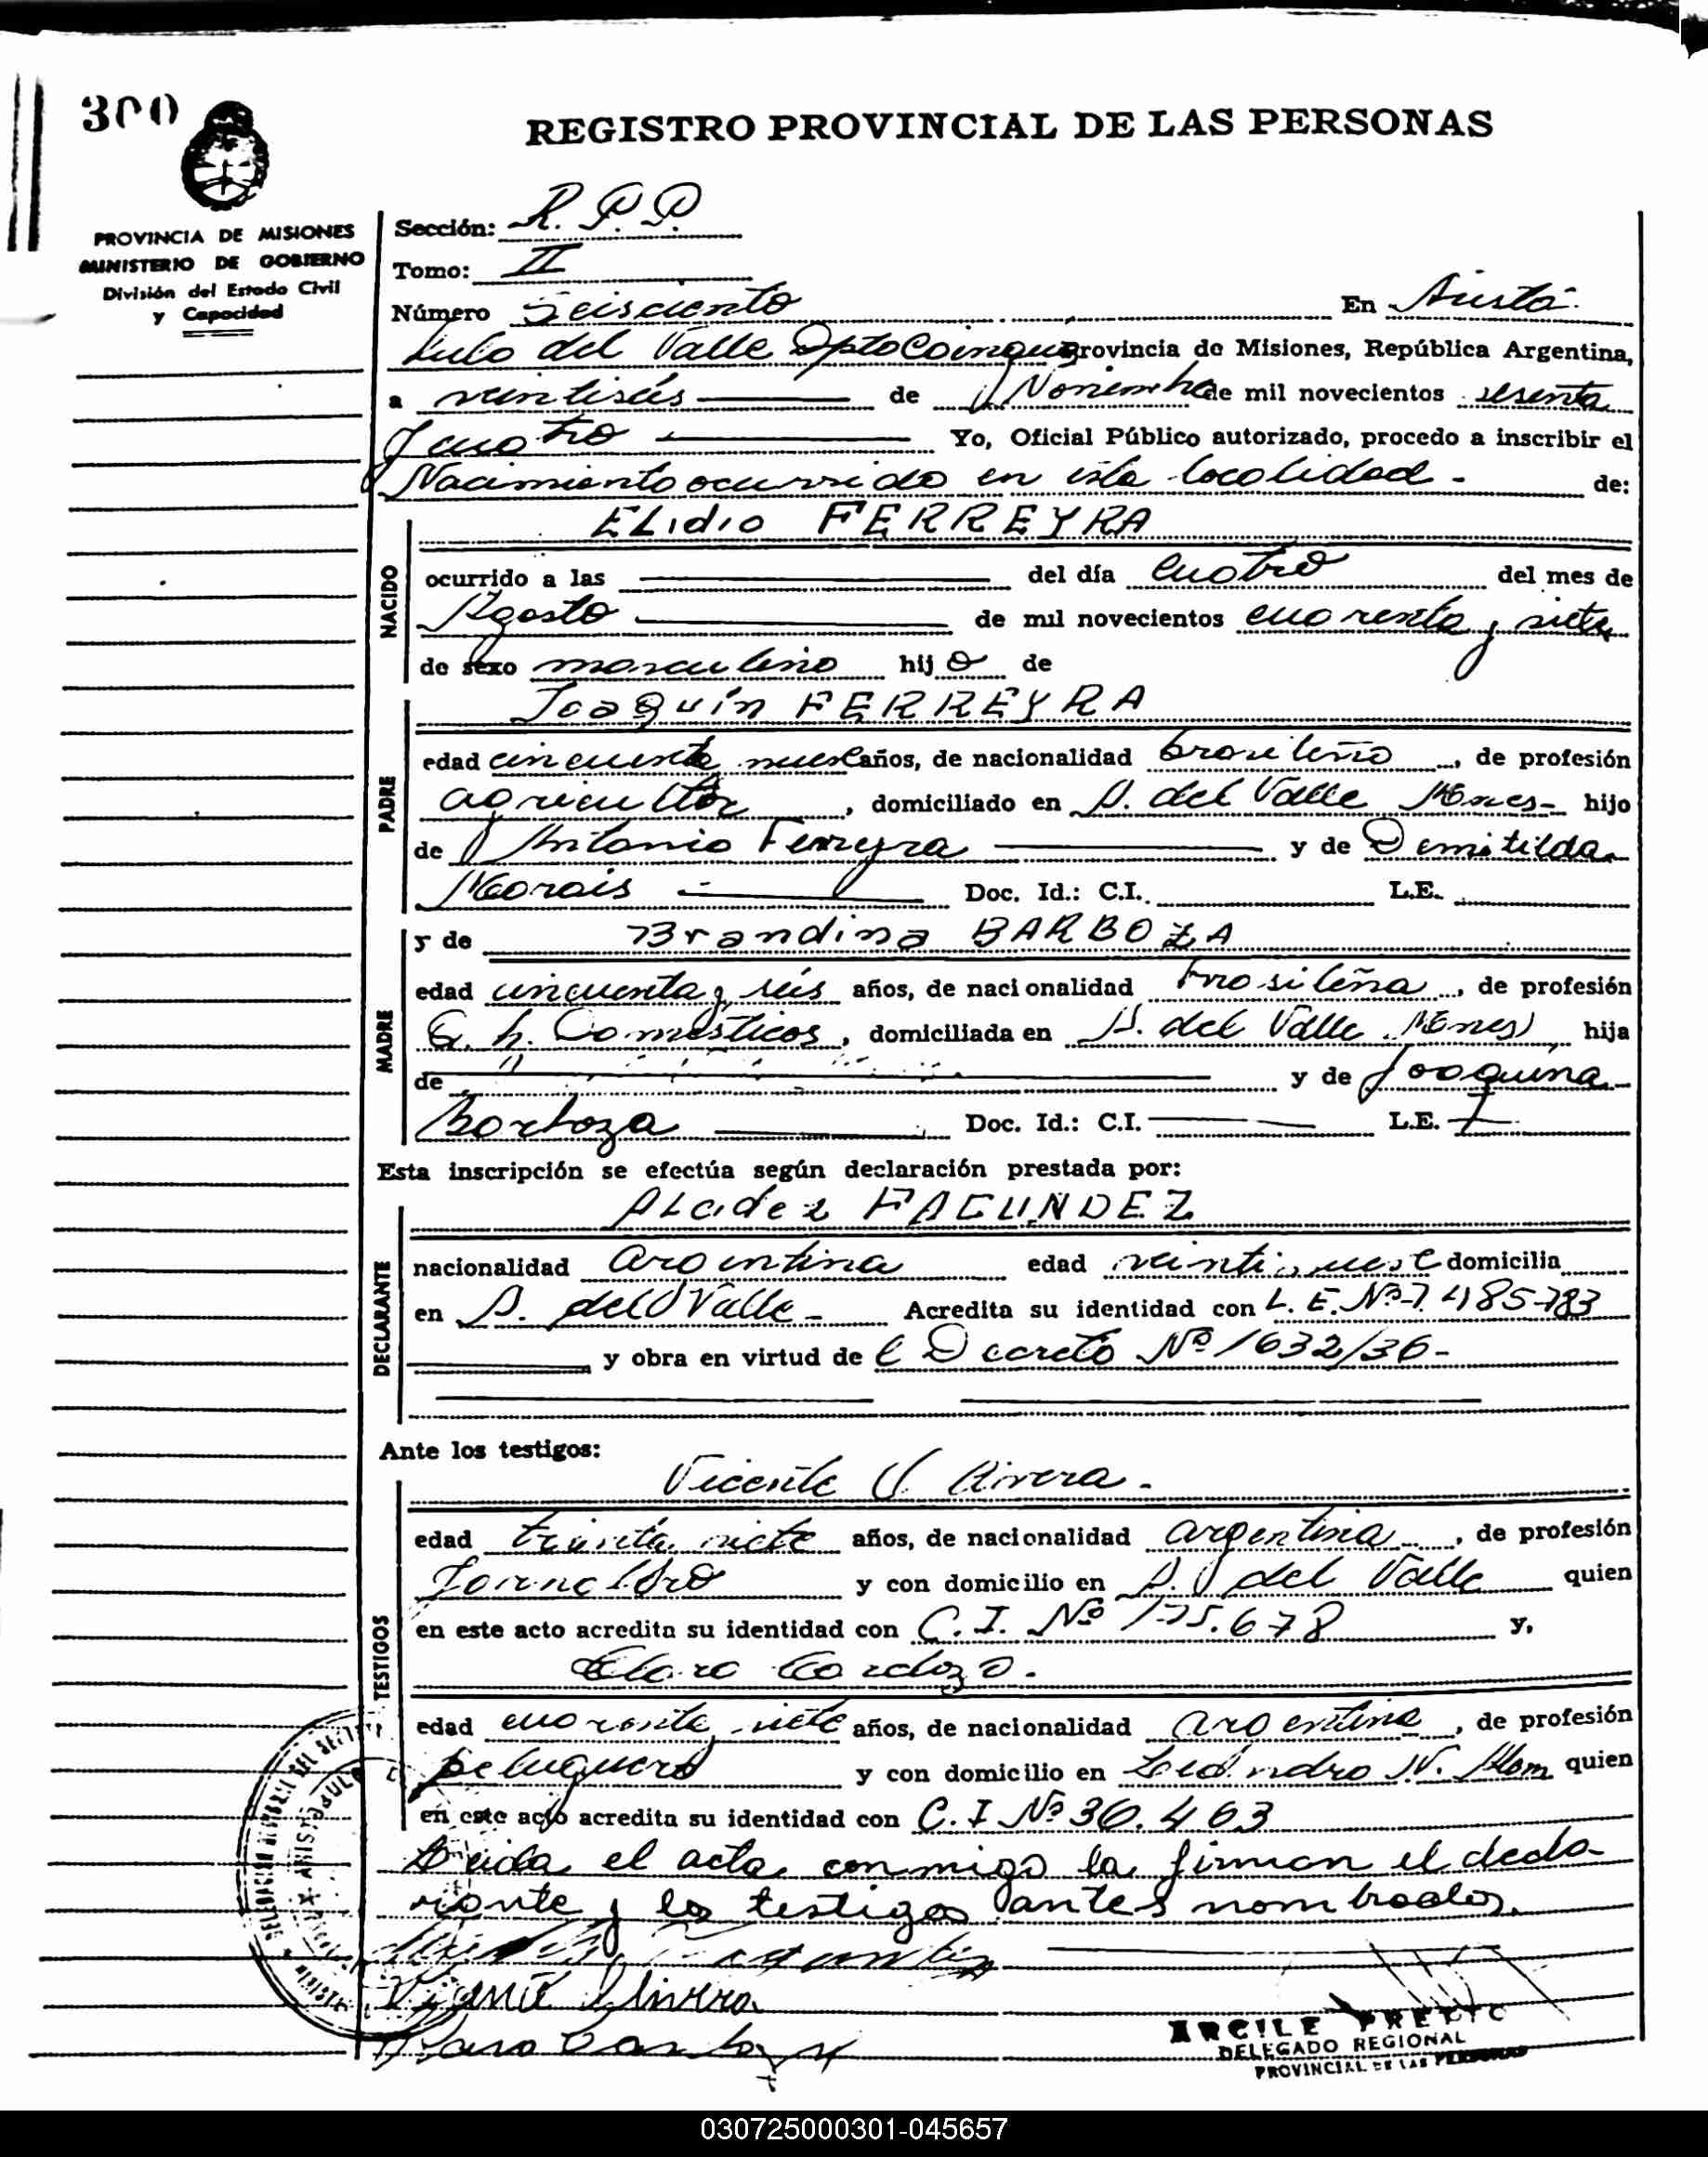 300
REGISTRO PROVINCIAL DE LAS PERSONAS
PROVINCIA DE MISIONES
MINISTERIO DE GOBIERNO
División del Estado Civil
y Capacidad
Sección: R. P. P.
Tomo: II
Número Seisciento En Aristó
bulo del Valle Dpto Coinguas Provincia de Misiones, República Argentina,
a veintiséis de Noviembre de mil novecientos sesenta
y cuatro Yo, Oficial Público autorizado, procedo a inscribir el
Nacimiento ocurrido en esta localidad - de:
NACIDO
ELidio FERREYRA
ocurrido a las del día cuatro del mes de
Agosto de mil novecientos cuarenta y siete
de sexo masculino hijo de
PADRE
Joaquín FERREYRA
edad cincuenta nueve años, de nacionalidad brasileño, de profesión
agricultor, domiciliado en A. del Valle Mnes- hijo
de Antonio Ferreyra y de Demitilda
Morais Doc. Id.: C.I. L.E.
MADRE
y de Brandina BARBOZA
edad cincuenta y seis años, de nacionalidad brasileña, de profesión
Q. h. Domésticos, domiciliada en A. del Valle Mnes) hija
de y de Joaquina
Borboza Doc. Id.: C.I. L.E.
Esta inscripción se efectúa según declaración prestada por:
DECLARANTE
ALcidez FAGUNDEZ
nacionalidad argentina edad veintinueve domicilia
en A. del Valle - Acredita su identidad con L. E. Nº 7.485.783
y obra en virtud de l Decreto Nº 1632/36-
Ante los testigos:
TESTIGOS
Vicente Rivera -
edad treinta siete años, de nacionalidad argentina, de profesión
Jornalero y con domicilio en A. del Valle quien
en este acto acredita su identidad con C. I. Nº 175.678 y,
Claro Cardozo.
edad cuarenta siete años, de nacionalidad argentina, de profesión
peluquero y con domicilio en Leandro N. Alem quien
en este acto acredita su identidad con C. I Nº 36.463
Leida el acta conmigo la firman el decla-
rante y los testigos antes nombrados.
Vicente Rivera
Claro Cardozo
ARCILE PRETTO
DELEGADO REGIONAL
PROVINCIAL DE LAS PERSONAS
030725000301-045657